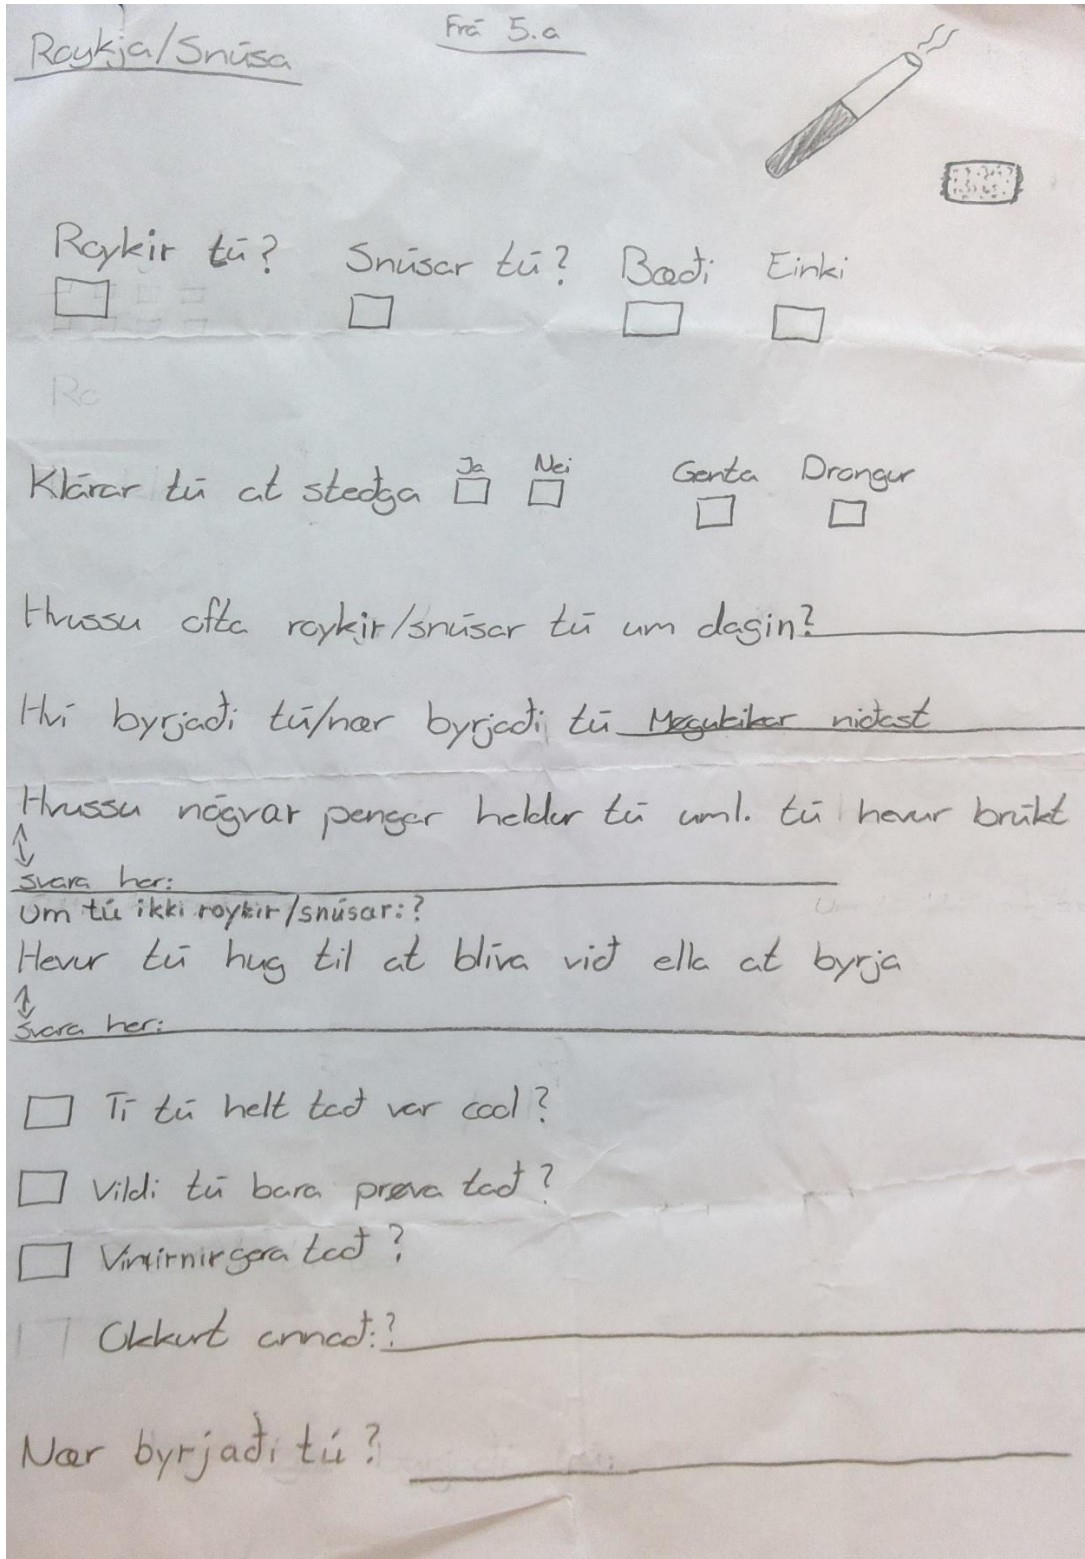 Roykja/Snúsa
Frá 5.a
Roykir tú? Snúsar tú? Bæði Einki
Ro
Klárar tú at steðga Ja Nei Genta Drongur
Hvussu ofta roykir/snúsar tú um dagin?
Hví byrjaði tú/nær byrjaði tú niðast
Hvussu nógvar pengar heldur tú uml. tú hevur brúkt
svara her:
Um tú ikki roykir/snúsar:?
Hevur tú hug til at blíva við ella at byrja
svara her:
Tí tú helt tað var cool?
Vildi tú bara prøva tað?
Vinirnir gera tað?
Okkurt annað:?
Nær byrjaði tú?